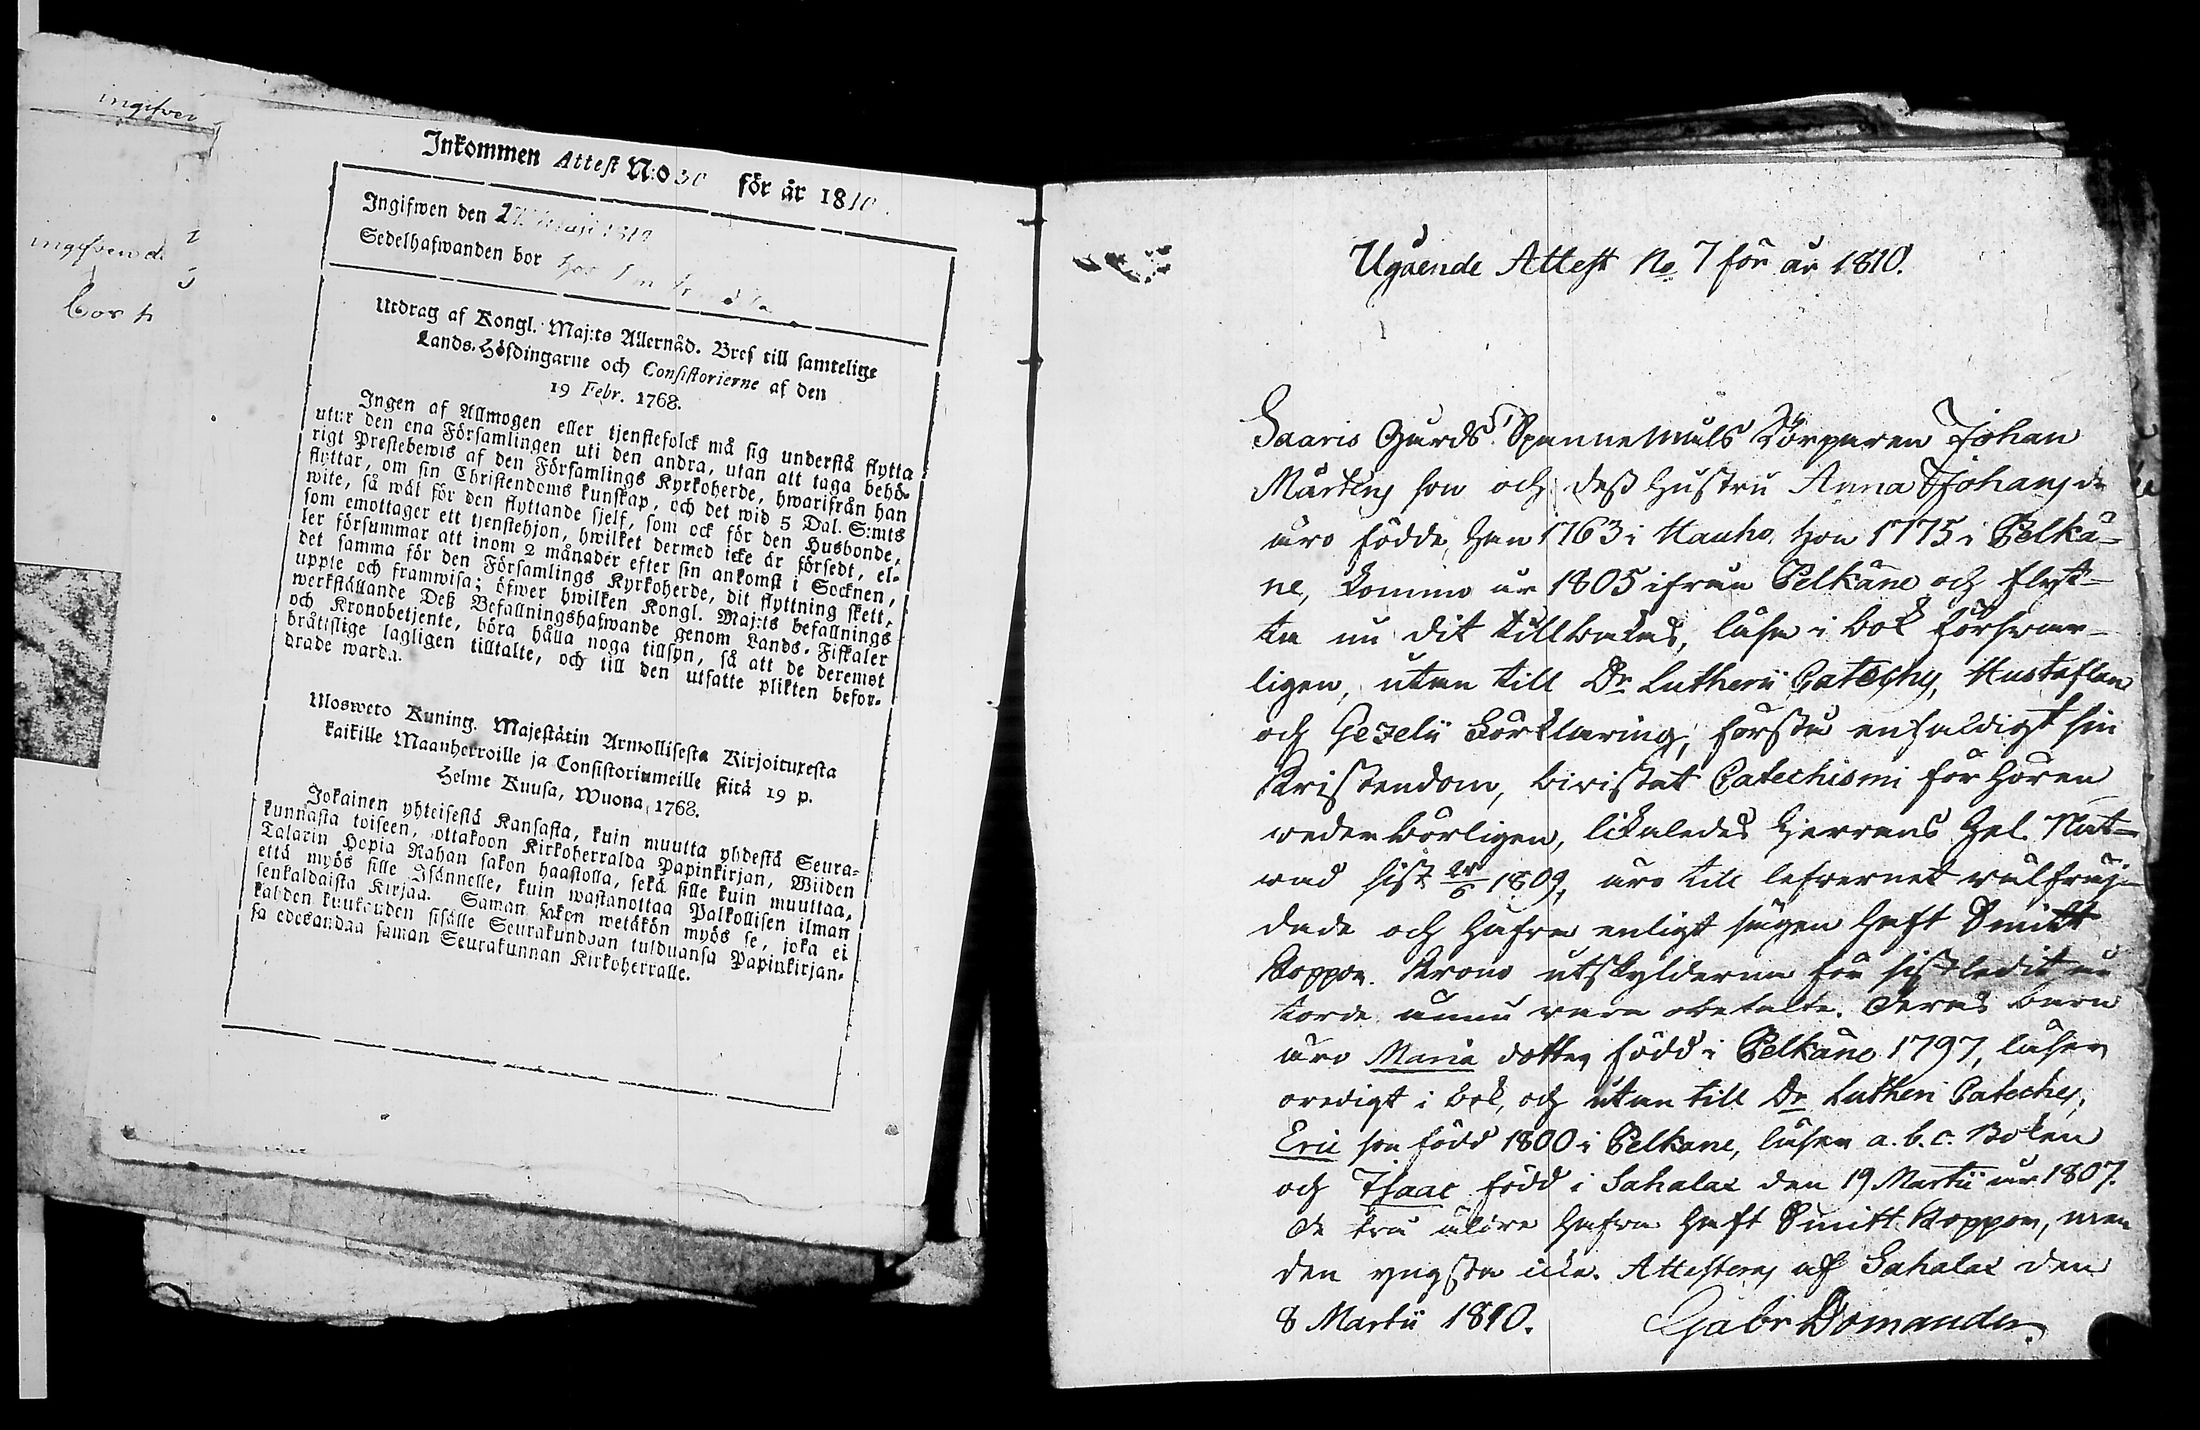 ingifven
ingifven d.
bor h
Inkommen Attest N:o 30 för år 1810.
Ingifwen den 27
Sedelhafwanden bor hos
Utdrag af Kongl. Maj:ts Allernåd. Bref till samtelige
Lands-Höfdingarne och Consistorierne af den
19 Febr. 1768.
Ingen af Allmogen eller tjenstefolck må sig understå flytta
utur den ena Församlingen uti den andra, utan att taga behö-
rigt Prestebewis af den Församlings Kyrkoherde, hwarifrån han
flyttar, om sin Christendoms kunskap, och det wid 5 Dal. S:mts
wite, så wäl för den flyttande sjelf, som ock för den Husbonde,
som emottager ett tjenstehjon, hwilket dermed icke är försedt, el-
ler försummar att inom 2 månader efter sin ankomst i Socknen,
det samma för den Församlings Kyrkoherde, dit flyttning skett,
uppte och framwisa; öfwer hwilken Kongl. Maj:ts befallnings
werkställande Deß Befallningshafwande genom Lands-Fiskaler
och Kronobetjente, böra hålla noga tillsyn, så att de deremot
bråttslige lagligen tilltalte, och till den utsatte plikten befor-
drade warda.
Ulosweto Kuning. Majestätin Armollisesta Kirjoituxesta
kaikille Maanherroille ja Consistoriumeille siitä 19 p.
Helme Kuusa, Wuona 1768.
Jokainen yhteisestä Kansasta, kuin muutta yhdestä Seura-
kunnasta toiseen, ottakoon Kirkoherralda Papinkirjan, Wiiden
Talarin Hopia Rahan sakon haastolla, sekä sille kuin muuttaa,
että myös sille Isännelle, kuin wastanottaa Palkollisen ilman
senkaldaista Kirjaa. Saman sakon wetäkön myös se, joka ei
kahden kuukauden sisälle Seurakundaan tulduansa Papinkirjan-
sa edesandaa saman Seurakunnan Kirkoherralle.
Ugående Attest No 7 för år 1810.
Saaris Gårds Spannemåls Torparen Johan
Mårtens son och deß Hustru Anna Johans dr
äro födde, han 1763 i Hauho, hon 1775 i Pelkä-
ne, komne år 1805 ifrån Pelkäne och flyt-
ta nu dit tillbakas, läsa i bok försvar-
ligen, utan till Dr Lutheri Cateches, Hustaflan
och Gezelii Förklaring, förstå enfaldigt sin
Kristendom, bivistat Catechismi förhören
vederbörligen, likaledes Herrens Hel. Natt-
vard sist 1809, äro till lefvernet välfräg-
dade och hafva enligt sägen haft Smitt
Koppor. Krono utskylderna för sistledit år
torde ännu vara obetalte. Deras barn
äro Maria dotter, född i Pelkäne 1797, läser
oredigt i bok, och utan till Dr Lutheri Cateches,
Eric son född 1800 i Pelkäne, läser a.b.c. Boken
och Isaac född i Sahalax den 19 Martii år 1807.
De två äldre hafva haft Smitt Koppor, men
den yngsta icke. Attesteras af Sahalax den
8 Martii 1810. Gabr Domander.